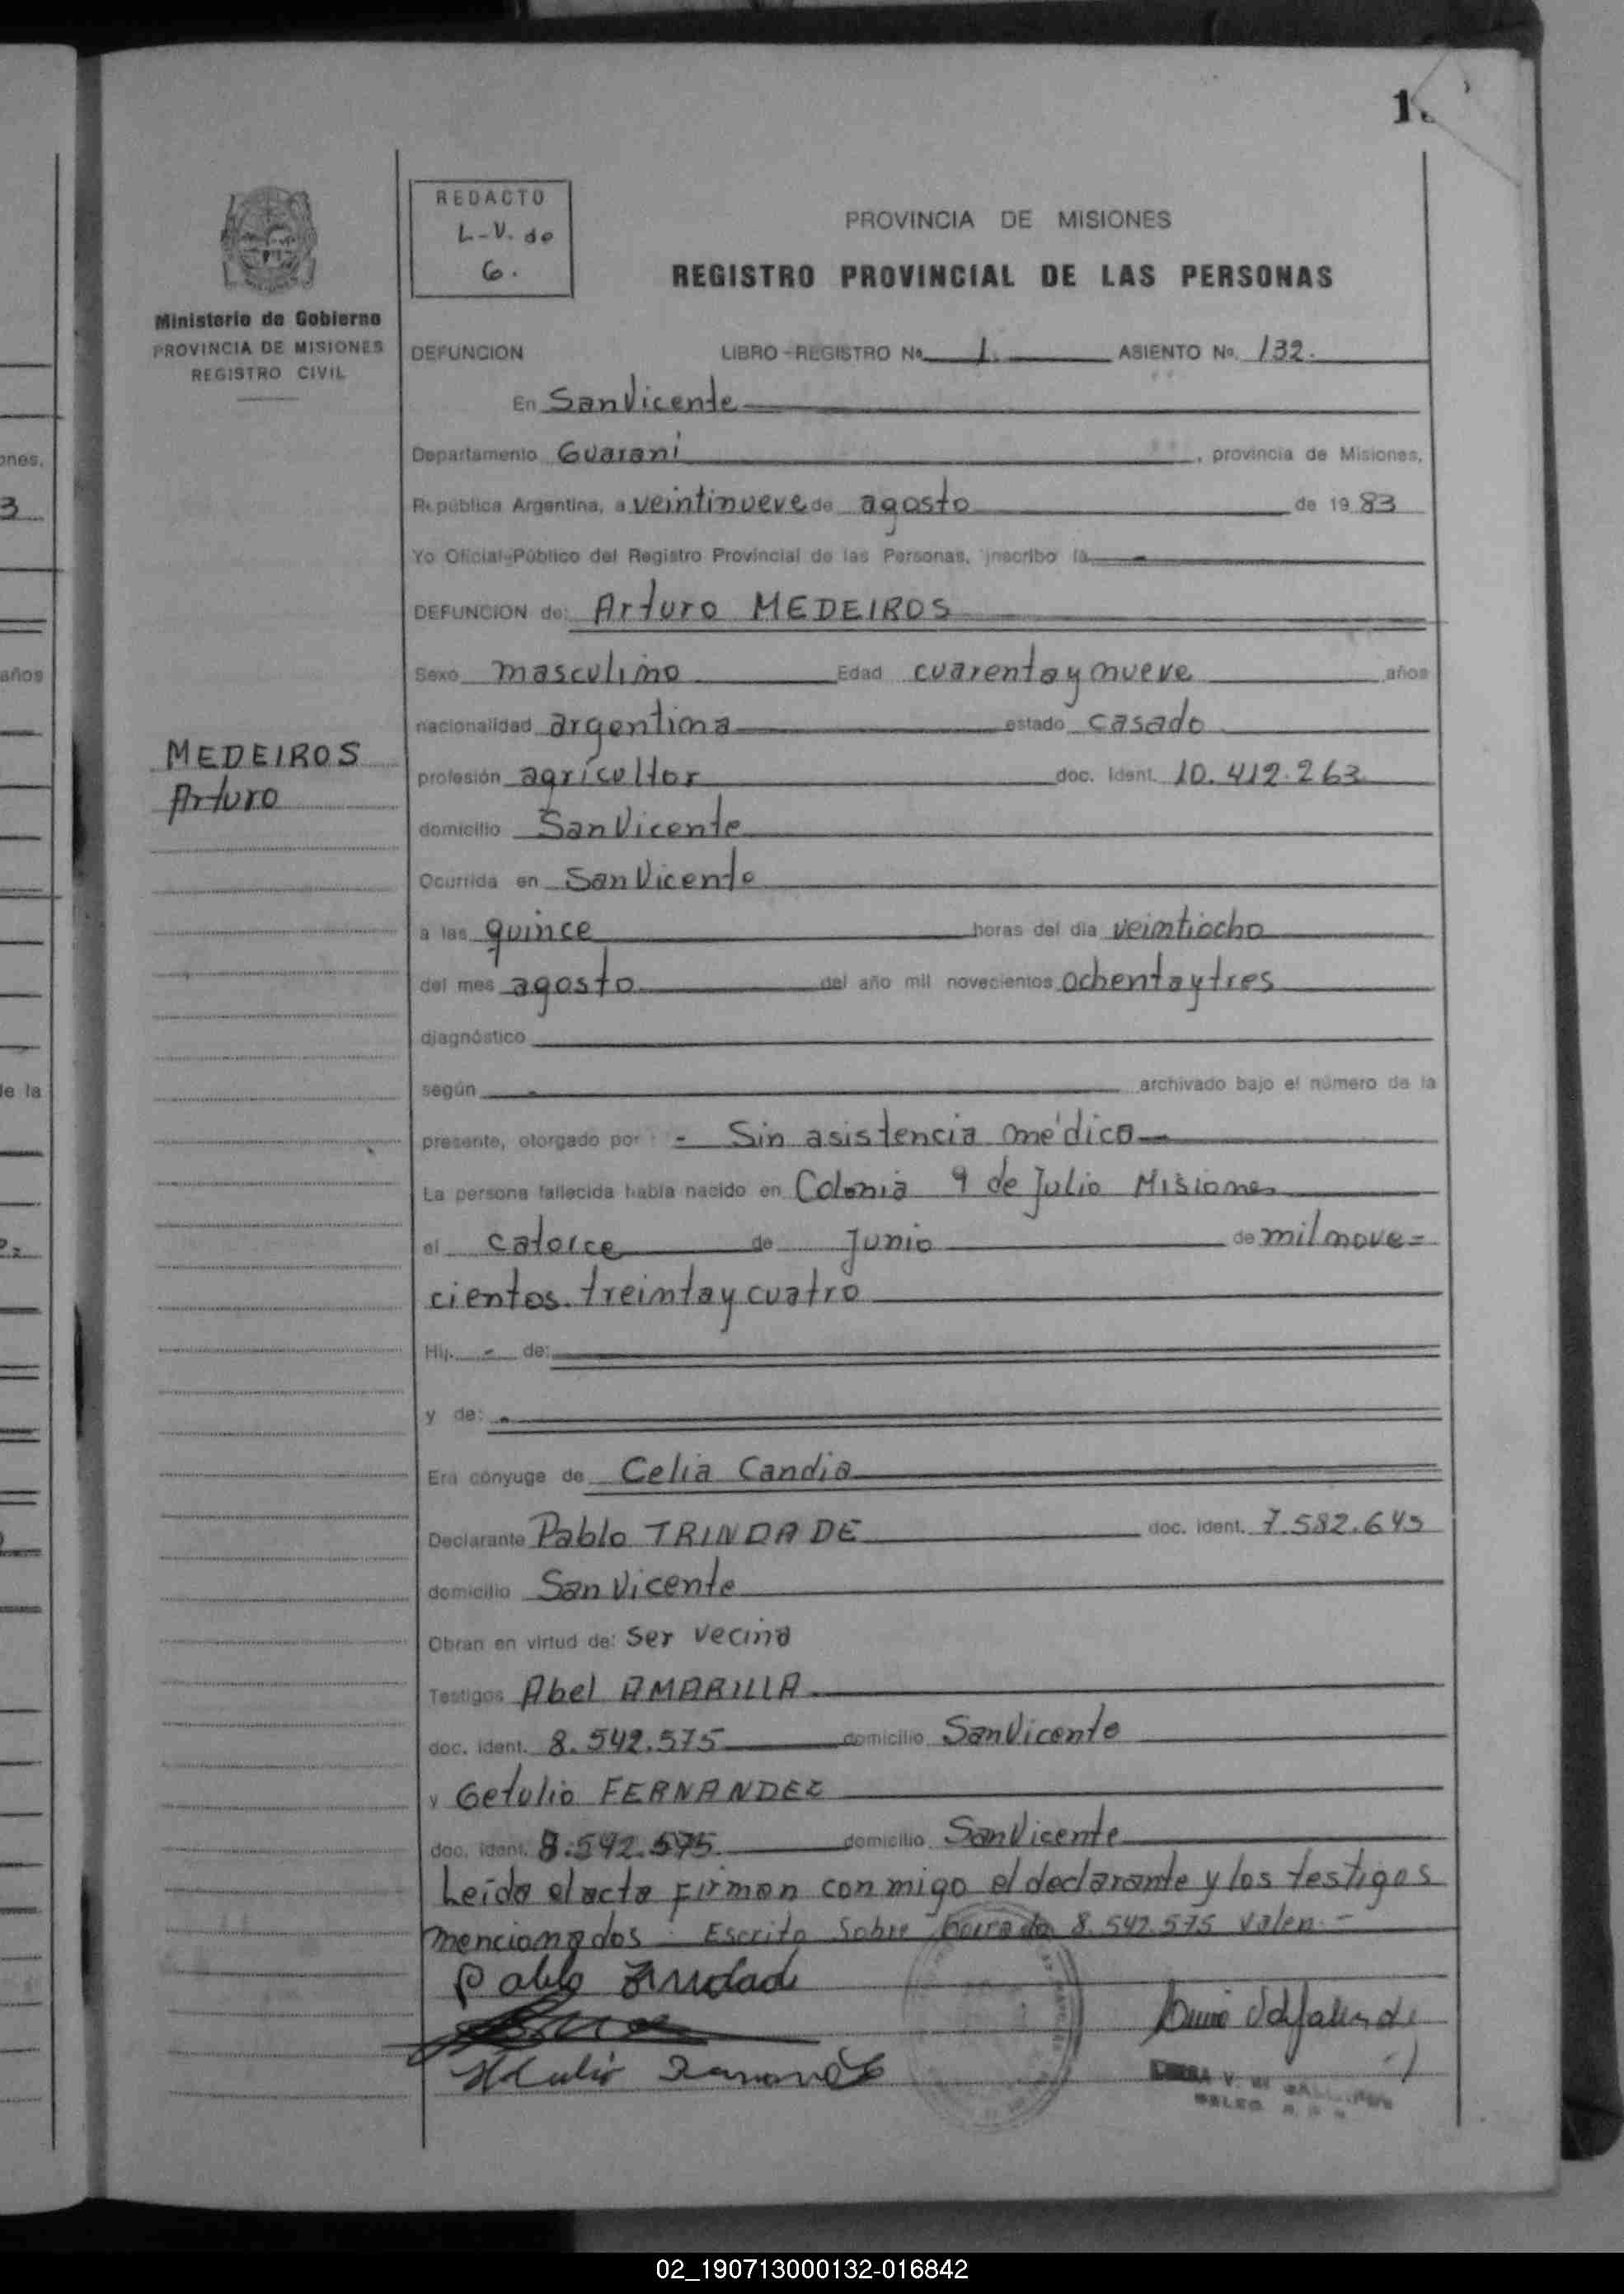 REDACTO
L-V. de
G.
PROVINCIA DE MISIONES
REGISTRO PROVINCIAL DE LAS PERSONAS
Ministerio de Gobierno
PROVINCIA DE MISIONES
REGISTRO CIVIL
DEFUNCION LIBRO-REGISTRO No. 1. ASIENTO No. 132.
En San Vicente
Departamento Guarani, provincia de Misiones,
República Argentina, a veintinueve de agosto de 19 83
Yo Oficial Público del Registro Provincial de las Personas, inscribo la
DEFUNCION de: Arturo MEDEIROS
Sexo masculino Edad cuarenta y nueve años
nacionalidad argentina estado casado
MEDEIROS
Arturo
profesión agricultor doc. ident. 10.412.263
domicilio San Vicente
Ocurrida en San Vicente
a las quince horas del día veintiocho
del mes agosto del año mil novecientos ochenta y tres
diagnóstico
según archivado bajo el número de la
presente, otorgado por: - Sin asistencia médica
La persona fallecida había nacido en Colonia 9 de Julio Misiones
el catorce de Junio de mil nove=
cientos treinta y cuatro
Hij. - de:
y de: -
Era cónyuge de Celia Candia
Declarante Pablo TRINDADE doc. ident. 7.582.645
domicilio San Vicente
Obran en virtud de: ser vecino
Testigos Abel AMARILLA
doc. ident. 8.542.575 domicilio San Vicente
y Getulio FERNANDEZ
doc. ident. 8.542.575 domicilio San Vicente
Leída el acta firman conmigo el declarante y los testigos
mencionados Escrito Sobre borrado 8.542.575 valen.-
Pablo
02_190713000132-016842